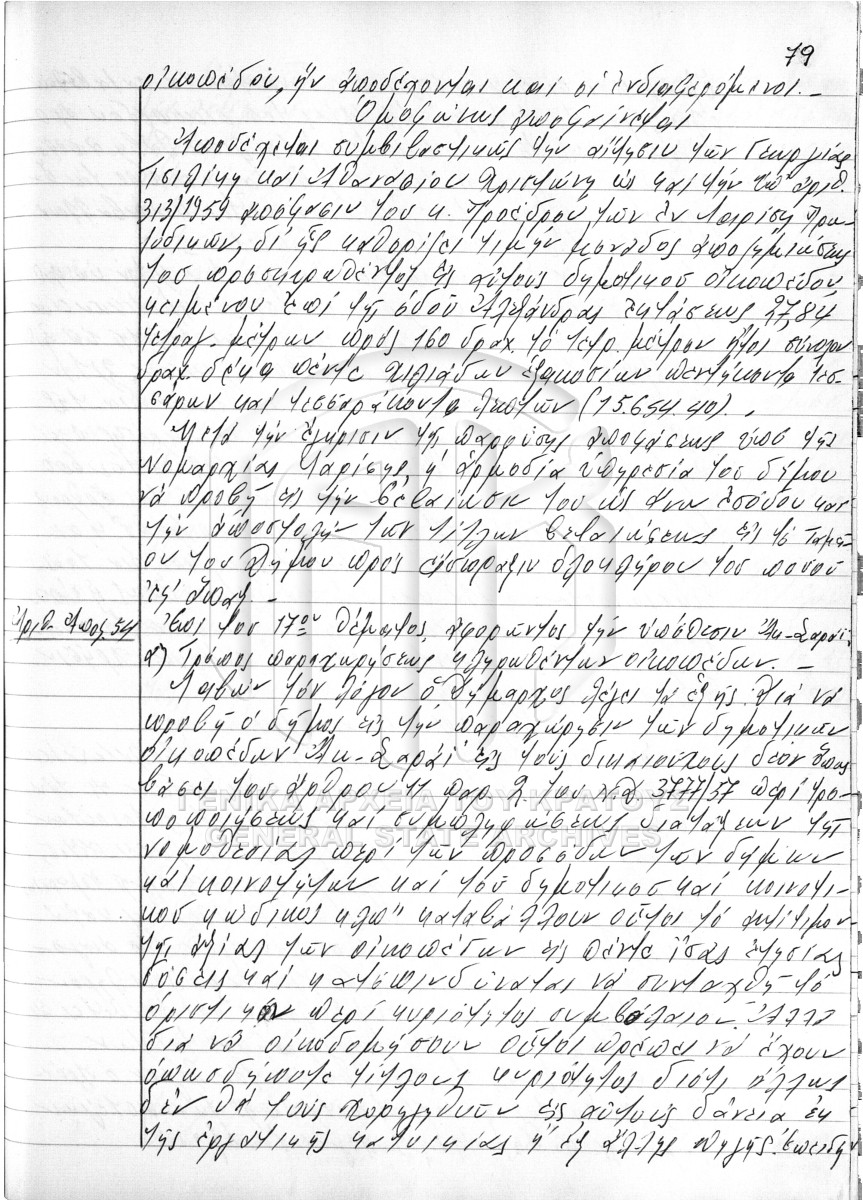 79
οἰκοπέδου, ἥν ἀποδέχονται καί οἱ ἐνδιαφερόμενοι. –
Ὁμοφώνως ἀποφαίνεται
Ἀποδέχεται συμβιβαστικῶς τήν αἴτησιν τῶν Γεωργίας
καί Ἀθανασίου ὡς καί τήν ὑπ' ἀριθ.
313/1959 ἀπόφασιν τοῦ κ. Προέδρου τῶν ἐν Λαρίσῃ Πρω-
τοδικῶν, δι' ἧς καθορίζει τιμήν μονάδος ἀποζημιώσεως
τοῦ προσκυρωθέντος εἰς αὐτούς δημοτικοῦ οἰκοπέδου
κειμένου ἐπί τῆς ὁδοῦ Ἀλεξάνδρας ἐκτάσεως 97,84
τετραγ. μέτρων πρός 160 δραχ. τό τετρ. μέτρον ἤτοι σύνολον
δραχ. δέκα πέντε χιλιάδων ἑξακοσίων πεντήκοντα τεσ-
σάρων καί τεσσαράκοντα λεπτῶν (15.654.40).
Μετά τήν ἔγκρισιν τῆς παρούσης ἀποφάσεως ὑπό τῆς
Νομαρχίας Λαρίσης, ἡ ἁρμοδία ὑπηρεσία τοῦ δήμου
νά προβῇ εἰς τήν βεβαίωσιν τοῦ ὡς ἄνω ἐσόδου καί
τήν ἀποστολήν τῶν τίτλων βεβαιώσεως εἰς τό Ταμεῖ-
ον τοῦ Δήμου πρός εἴσπραξιν ὁλοκλήρου τοῦ ποσοῦ
ἐφ' ἅπαξ. –
Ἀριθ. Ἀποφ. 54 Ἐπί τοῦ 17ου θέματος, ἀφορῶντος τήν ὑπόθεσιν Ἀκ-Σαράϊ
α) Τρόπος παραχωρήσεως κληρωθέντων οἰκοπέδων. –
Λαβών τόν λόγον ὁ Δήμαρχος λέγει τά ἑξῆς: Διά νά
προβῇ ὁ δῆμος εἰς τήν παραχώρησιν τῶν δημοτικῶν
οἰκοπέδων Ἀκ-Σαράϊ εἰς τούς δικαιούχους δέον ὅπως
βάσει τοῦ ἄρθρου 11 παρ. 2 τοῦ ν.δ. 3777/57 περί τρο-
ποποιήσεως καί συμπληρώσεως διατάξεων τῆς
νομοθεσίας περί τῶν προσόδων τῶν δήμων
καί κοινοτήτων καί τοῦ δημοτικοῦ καί κοινοτι-
κοῦ κώδικος κλπ" καταβάλλουν οὗτοι τό ἀντίτιμον
τῆς ἀξίας τῶν οἰκοπέδων εἰς πέντε ἴσας ἐτησίας
δόσεις καί κατόπιν δύναται νά συνταχθῇ τό
ὁριστικόν περί κυριότητος συμβόλαιον. Ἀλλά
διά νά οἰκοδομήσουν οὗτοι πρέπει νά ἔχουν
ὁπωσδήποτε τίτλους κυριότητος διότι ἄλλως
δέν θά τούς χορηγηθοῦν εἰς αὐτούς δάνεια ἐκ
τῆς ἐργατικῆς κατοικίας ἤ ἐξ ἄλλης πηγῆς. Ἐπειδή
ΓΕΝΙΚΑ ΑΡΧΕΙΑ ΤΟΥ ΚΡΑΤΟΥΣ
GENERAL STATE ARCHIVES